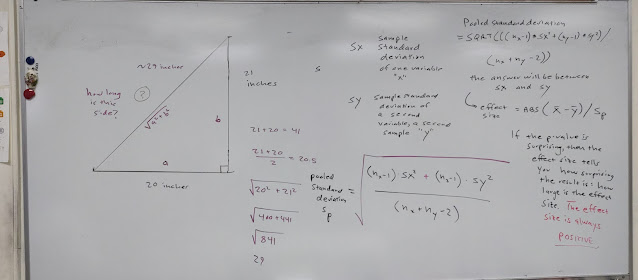 ~29 inches
how long
is this
side?
?
√a²+b²
b
a
20 inches
21
inches
21+20 = 41
21+20
2
= 20.5
√20² + 21²
√400+441
√841
29
sx
sample
standard
deviation
of one variable
"x"
s
sy
sample standard
deviation of
a second
variable, a second
sample "y"
pooled
standard
deviation
sp
=
√
(nx-1)·sx² + (nx-1)·sy²
(nx+ny-2)
Pooled standard deviation
=SQRT(((nx-1)*sx²+(ny-1)*sy²)/
(nx+ny-2))
the answer will be between
sx and sy
effect
size
=ABS(x̄-ȳ)/sp
If the p-value is
surprising, then the
effect size tells
you how surprising
the result is: how
large is the effect
size. The effect
size is always
POSITIVE.